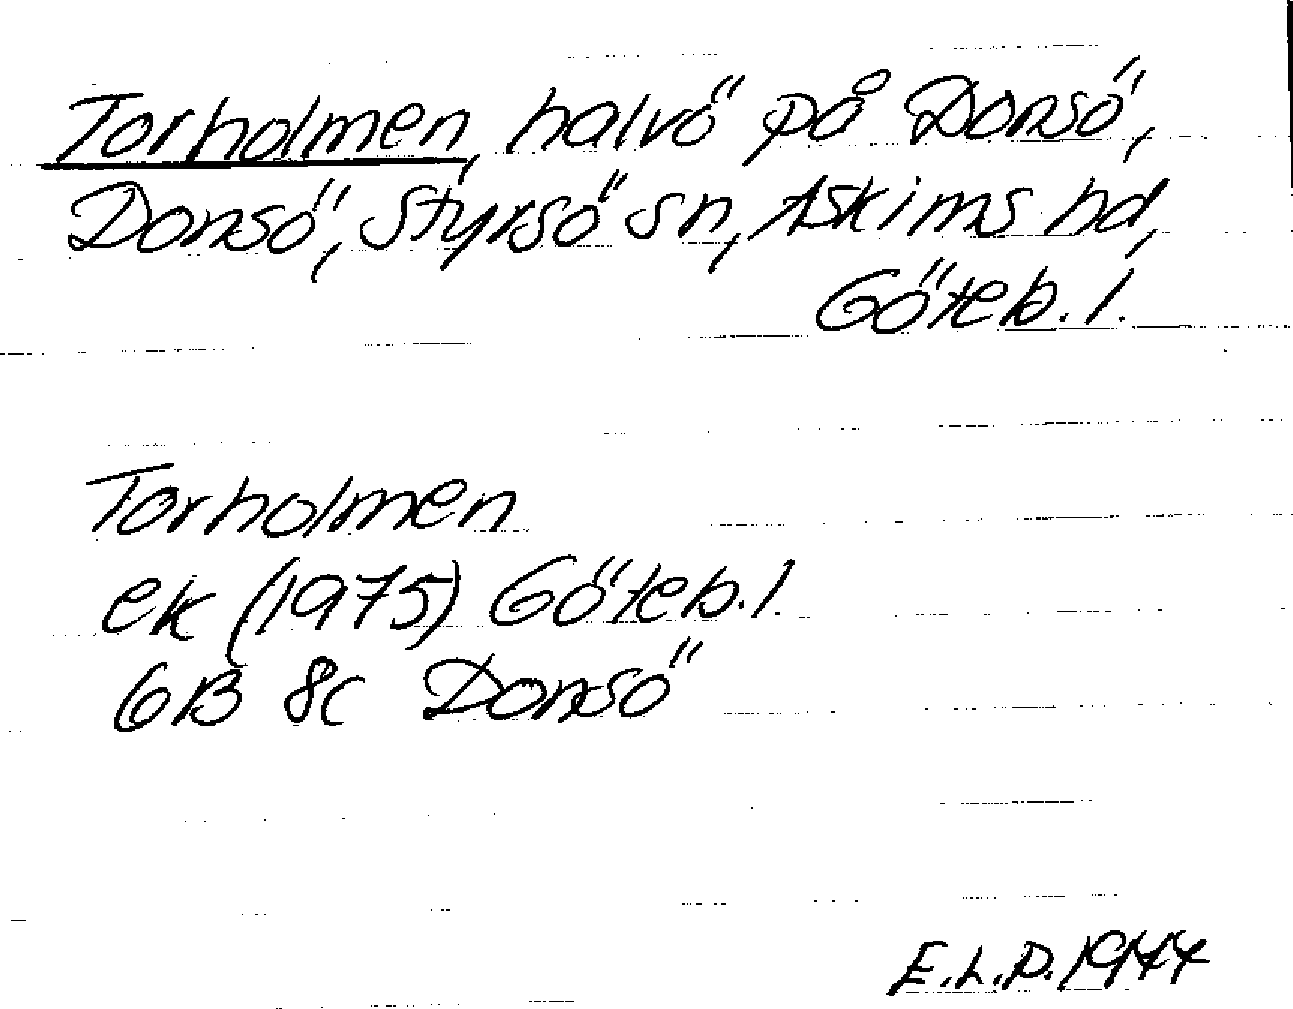 Torholmen, halvö på Donsö,
Donsö, Styrsö sn, Askims hd,
Göteb. l.
Torholmen
ek (1975) Göteb. l.
6B 8c Donsö
E.L.P. 1977